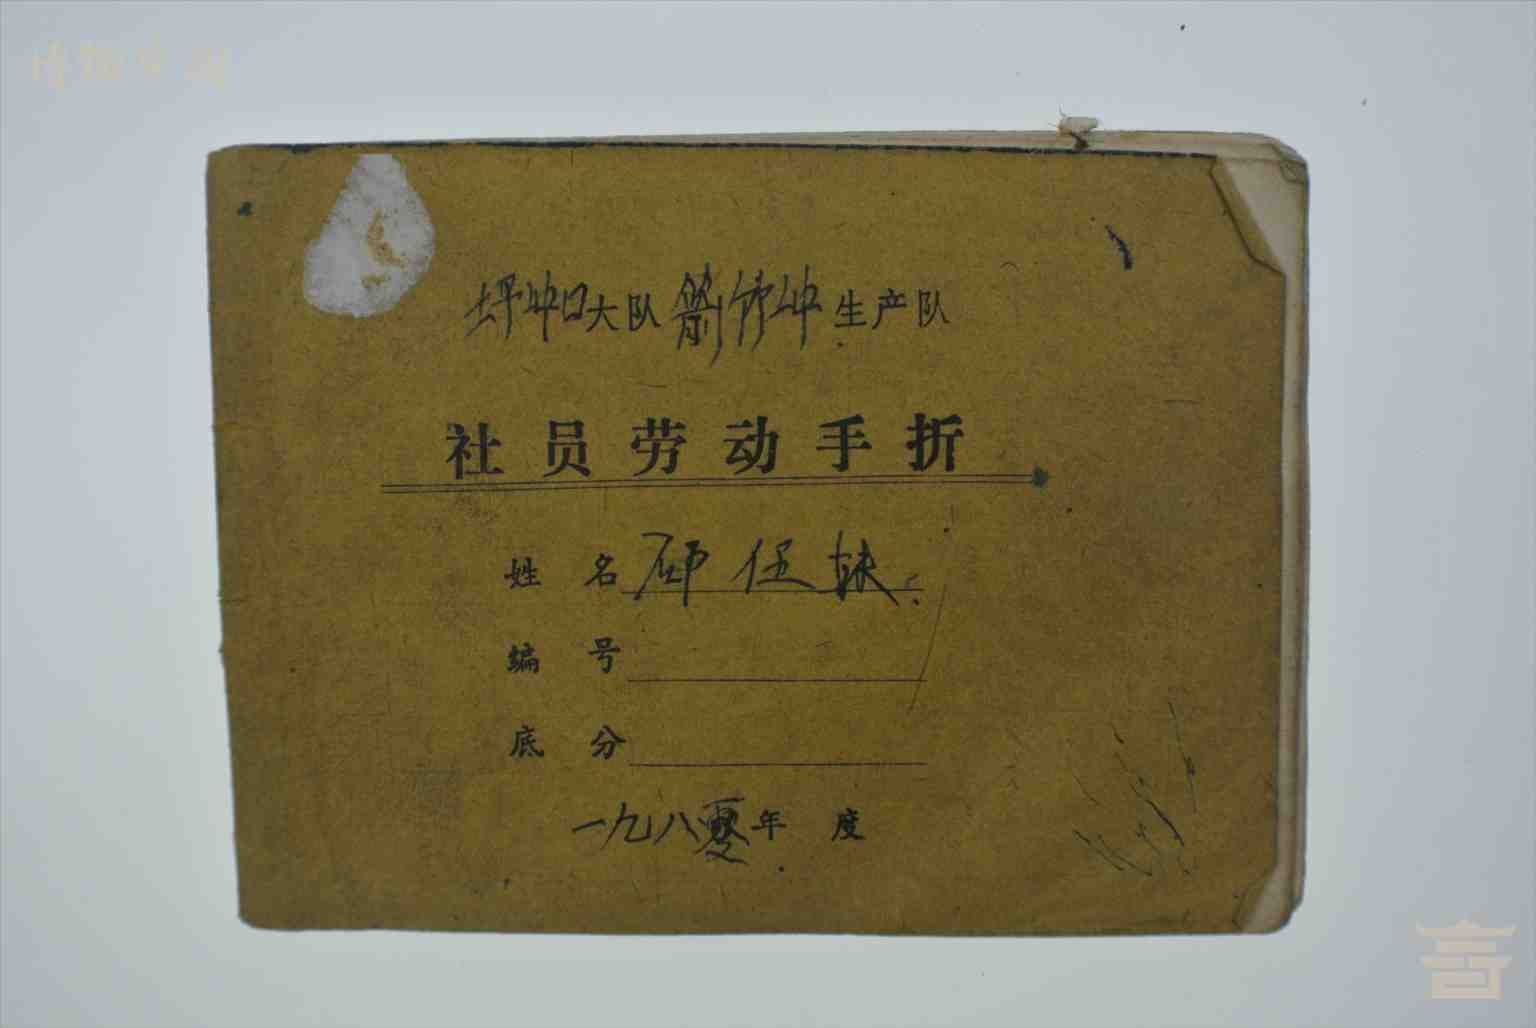 坪冲口大队箭竹冲生产队
社员劳动手折
姓 名 伍妹
编 号
底 分
一九八零年 度